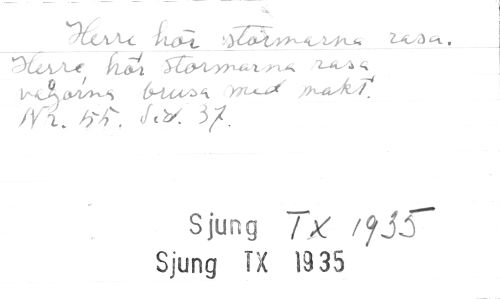 Herre hör stormarna rasa.
Herre, hör stormarna rasa
vågorna brusa med makt.
Nr. 55. Sid. 37.
Sjung TX 1935
Sjung TX 1935